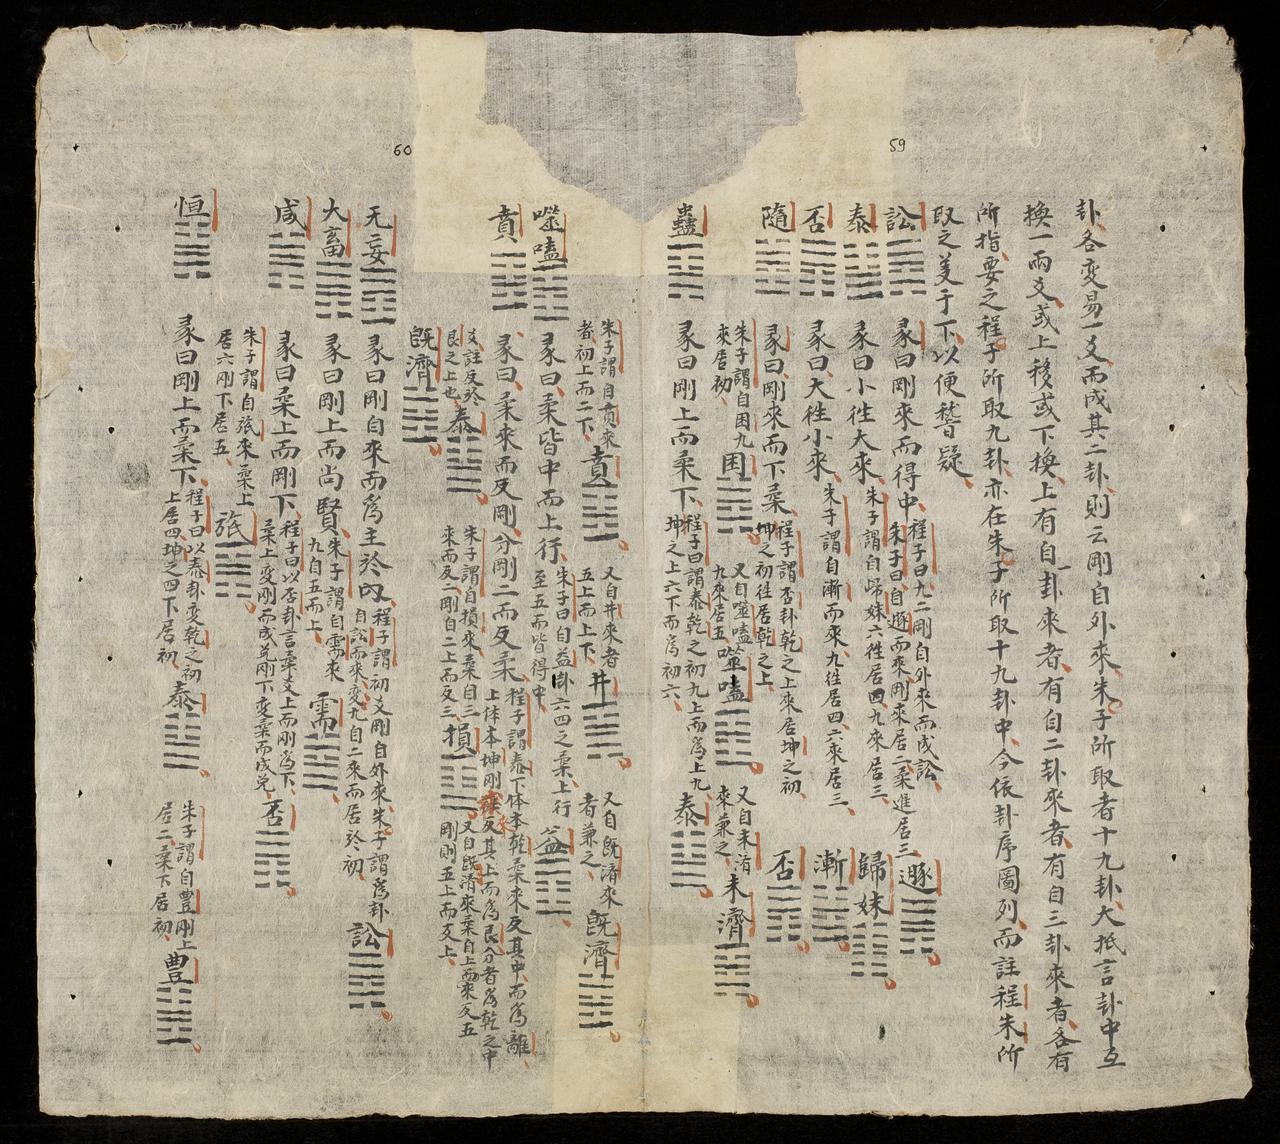 59
卦各変易一爻而成其二卦則云剛自外來朱子所取者十九卦大抵言卦中互
換一兩爻或上移或下換上有自一卦來者有自二卦來者有自三卦來者各有
所指要之程子所取九卦亦在朱子所取十九卦中今依卦序圖列而註程朱所
取之美于下以便嵆疑
訟 彖曰剛來而得中 程子曰九二剛自外來而成訟
朱子曰自遯而來剛來居二柔進居三 遯
泰 彖曰小徃大來 朱子謂自歸妹六徃居四九來居三 歸妹
否 彖曰大徃小來 朱子謂自漸而來九徃居四六來居三 漸
隨 彖曰剛來而下柔 程子謂否卦乾之上來居坤之初
坤之初徃居乾之上 否
朱子謂自困九
來居初 困 又自噬嗑
九來居五 噬嗑 又自未済
來兼之 未濟
蠱 彖曰剛上而柔下 程子曰謂泰乾之初九上而爲上九
坤之上六下而爲初六 泰
朱子謂自賁來
者初上而二下 賁 又自井來者
五上而上下 井 又自既済來
者兼之 既濟
60
噬嗑 彖曰柔皆中而上行 朱子曰自益卦六四之柔上行
至五而皆得中 益
賁 彖曰柔來而反剛分剛二而反柔 程子謂泰下体本乾柔來反其中而爲離
上体本坤剛徃反其上而爲艮分者爲乾之中
爻註反於
艮之上也 泰 朱子謂自損來柔自三
來而反二剛自二上而反三 損 又自既済來柔自上而來反五
剛則五上而反上
既濟
无妄 彖曰剛自來而爲主於內 程子謂初爻剛自外來朱子謂爲卦
自訟而來変九自二來而居於初 訟
大畜 彖曰剛上而尚賢 朱子謂自需來
九自五而上 需
咸 彖曰柔上而剛下 程子曰以否卦言柔爻上而剛爲下
柔上変剛而成兌剛下変柔而成 否
朱子謂自旅來柔上
居六剛下居五 旅
恒 彖曰剛上而柔下 程子曰以泰卦変乾之初
上居四坤之四下居初 泰 朱子謂自豊剛上
居二柔下居初 豊